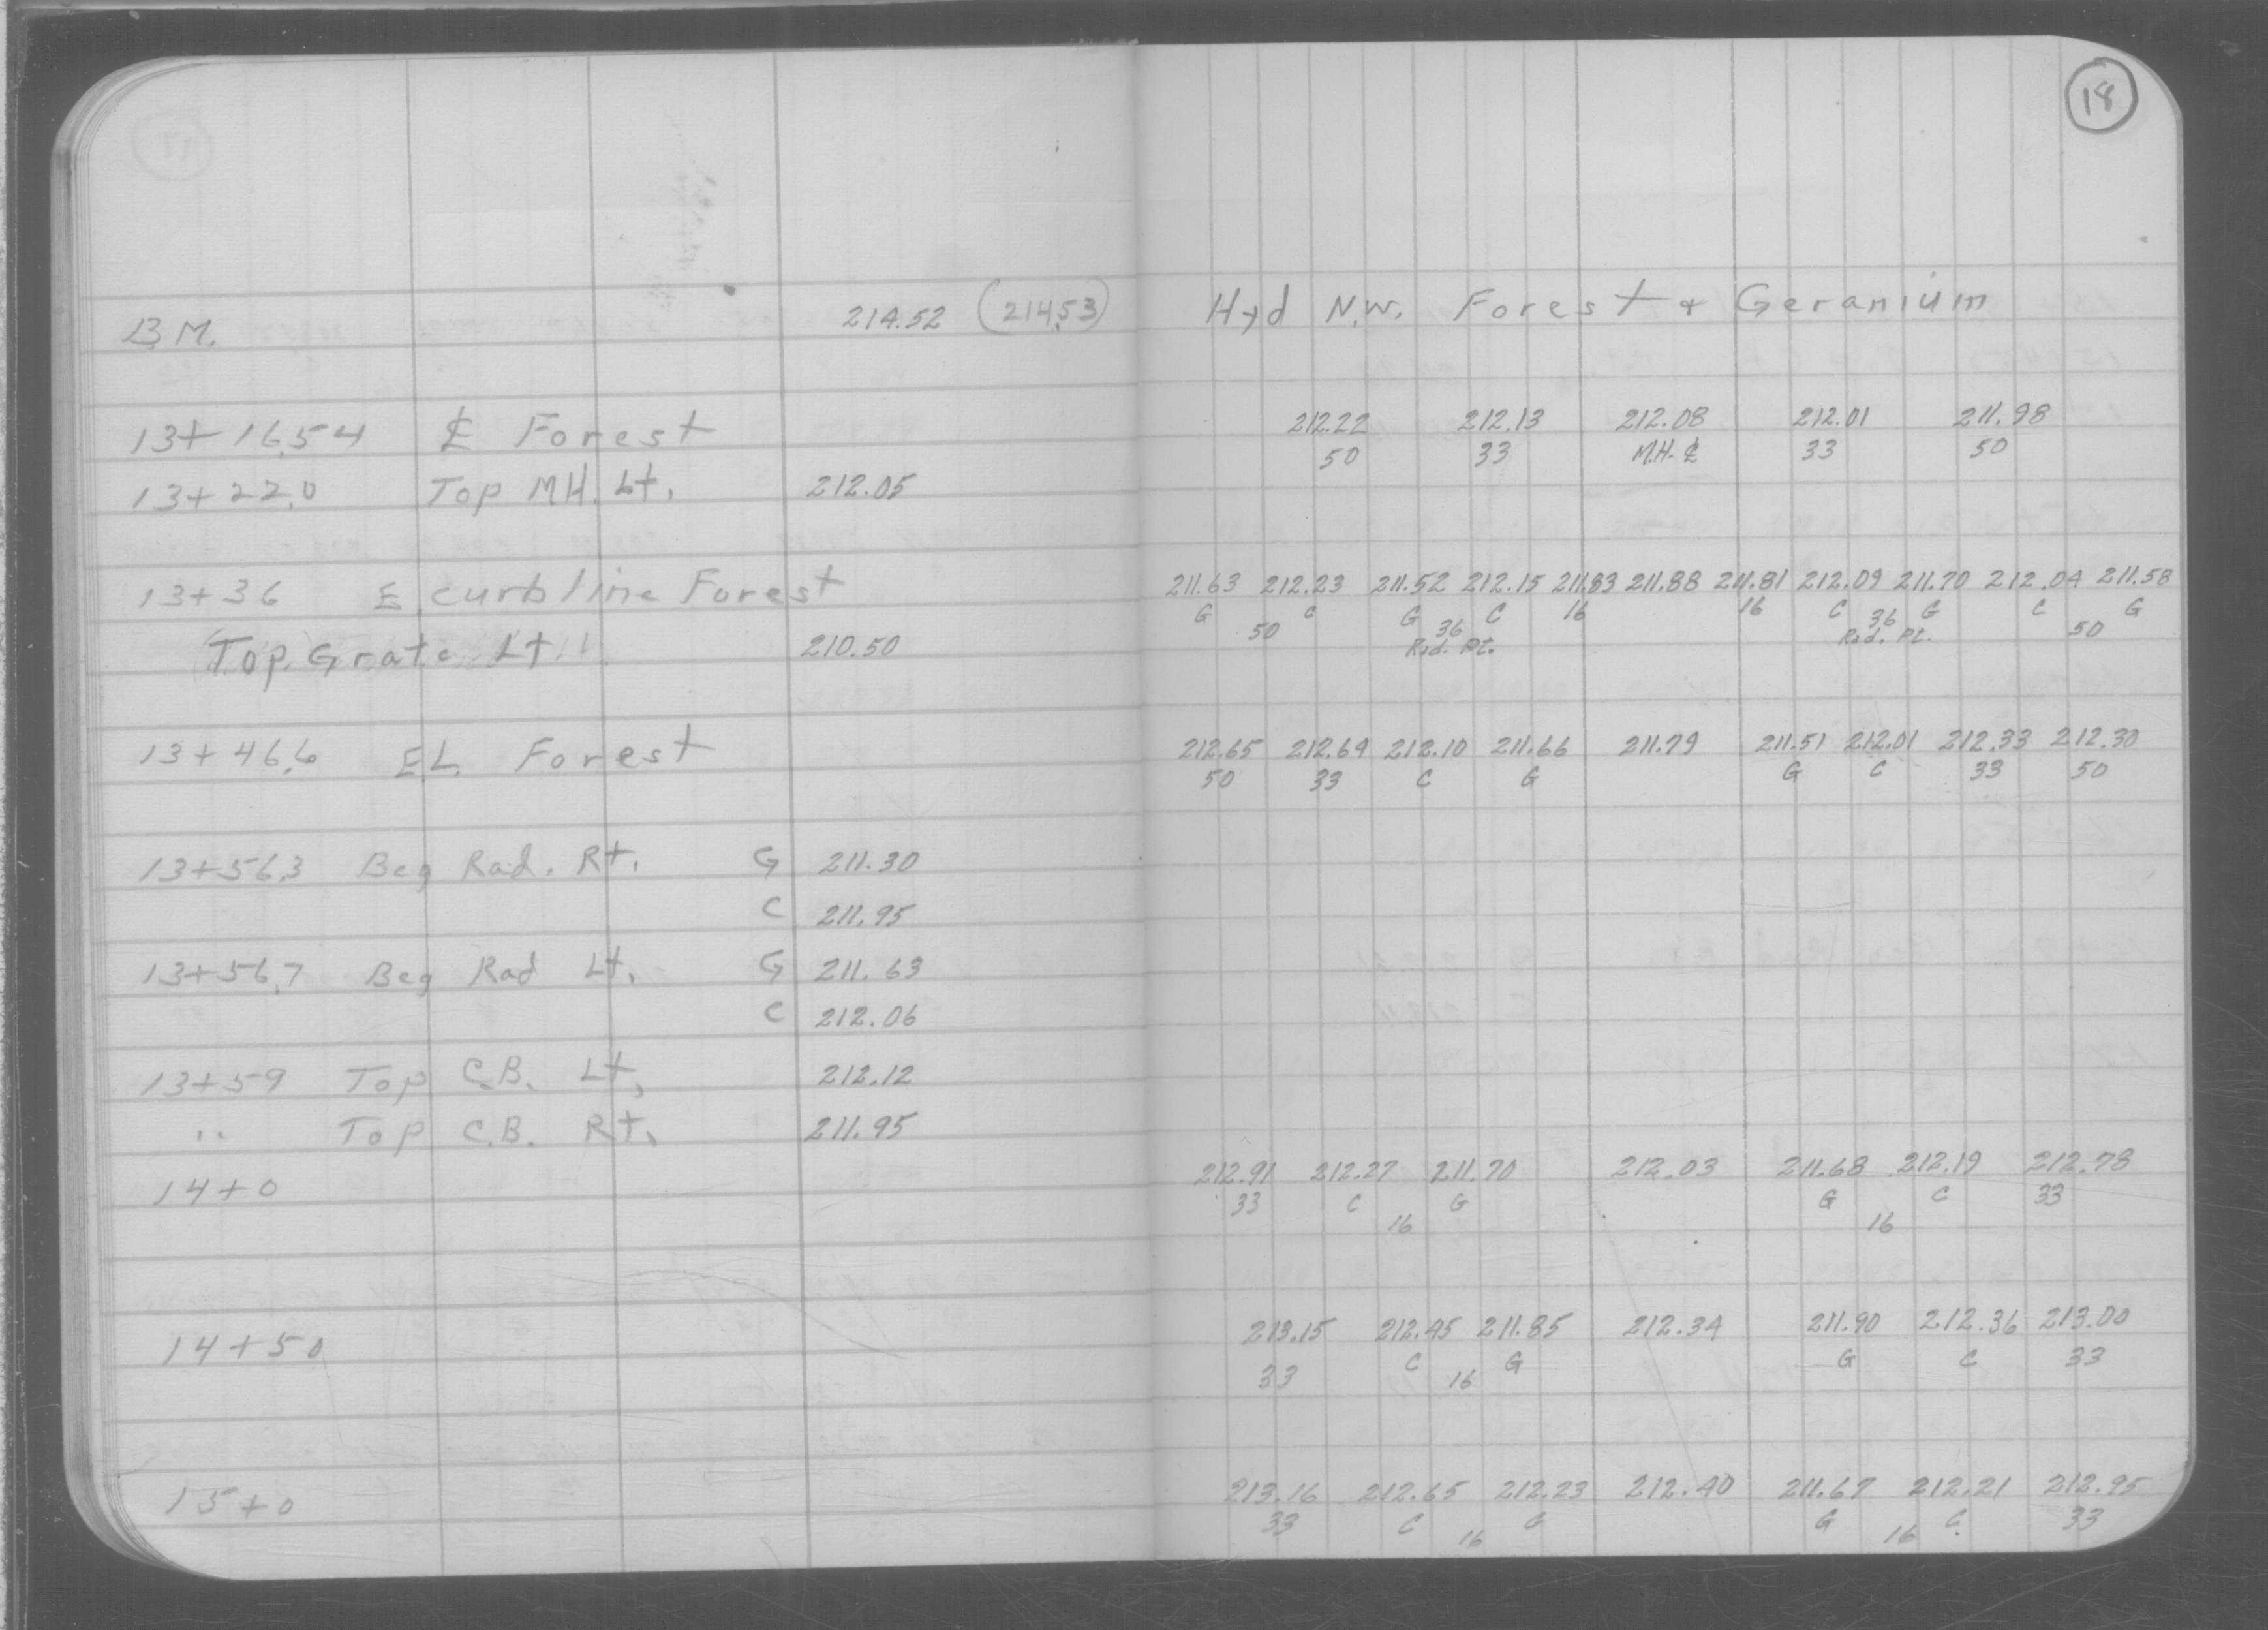 18
B.M. 214.52 (214.53) Hyd N.W. Forest & Geranium
13+16.54 ℄ Forest 212.22 212.13 212.08 212.01 211.98
50 33 M.H. ℄ 33 50
13+22.0 Top M.H. Lt. 212.05
13+36 E. curb line Forest 211.63 212.23 211.52 212.15 211.83 211.88 211.81 212.09 211.70 212.04 211.58
G C G C 16 16 C G C G
50 36 36 50
Rad. Pt. Rad. Pt.
Top Grate Lt. 210.50
13+46.6 E.L. Forest 212.65 212.69 212.10 211.66 211.79 211.51 212.01 212.33 212.30
50 33 C G G C 33 50
13+56.3 Beg Rad. Rt. G 211.30
C 211.95
13+56.7 Beg Rad Lt. G 211.63
C 212.06
13+59 Top C.B. Lt. 212.12
" Top C.B. Rt. 211.95
14+0 212.91 212.27 211.70 212.03 211.68 212.19 212.78
33 C G G C 33
16 16
14+50 213.15 212.45 211.85 212.34 211.90 212.36 213.00
33 C G G C 33
16
15+0 213.16 212.65 212.23 212.40 211.67 212.21 212.95
33 C G G C 33
16 16